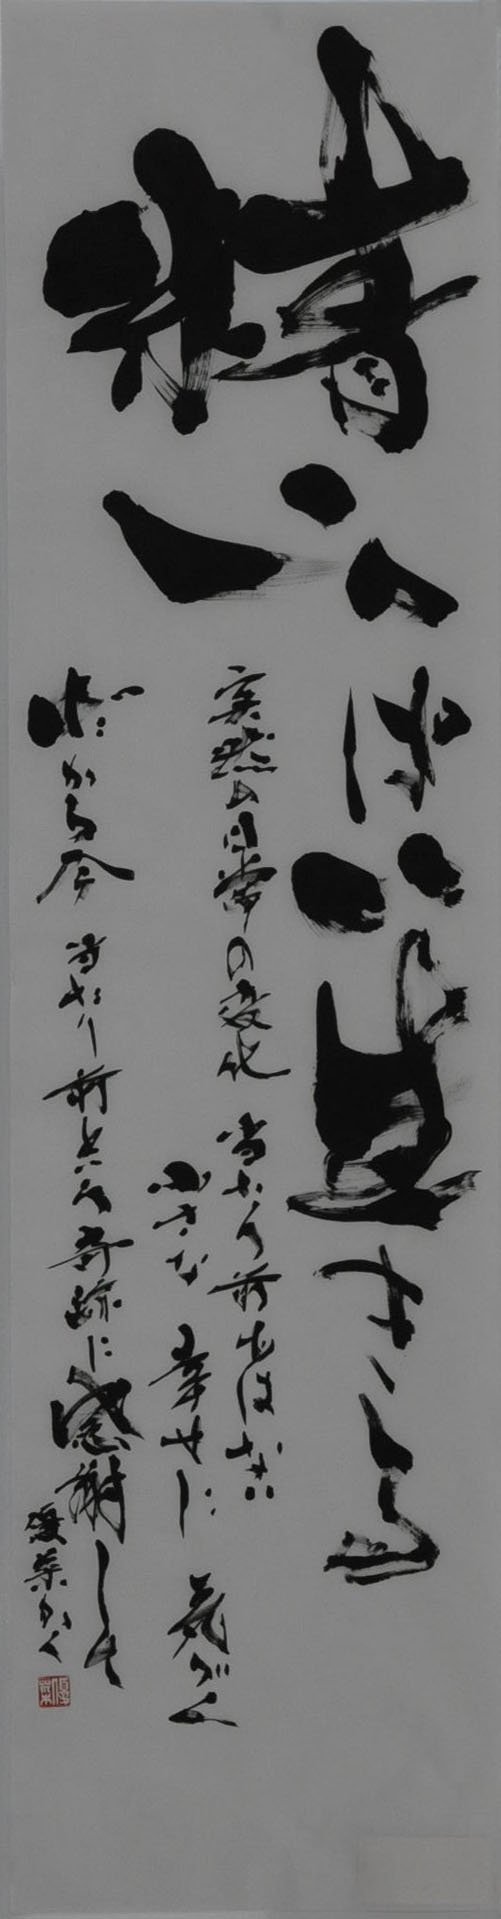 精いっぱい生きる
突然の日常の変化 当たり前ではない
小さな幸せに 気づく
だから今 当たり前という奇跡に感謝して
優菜かく
優菜